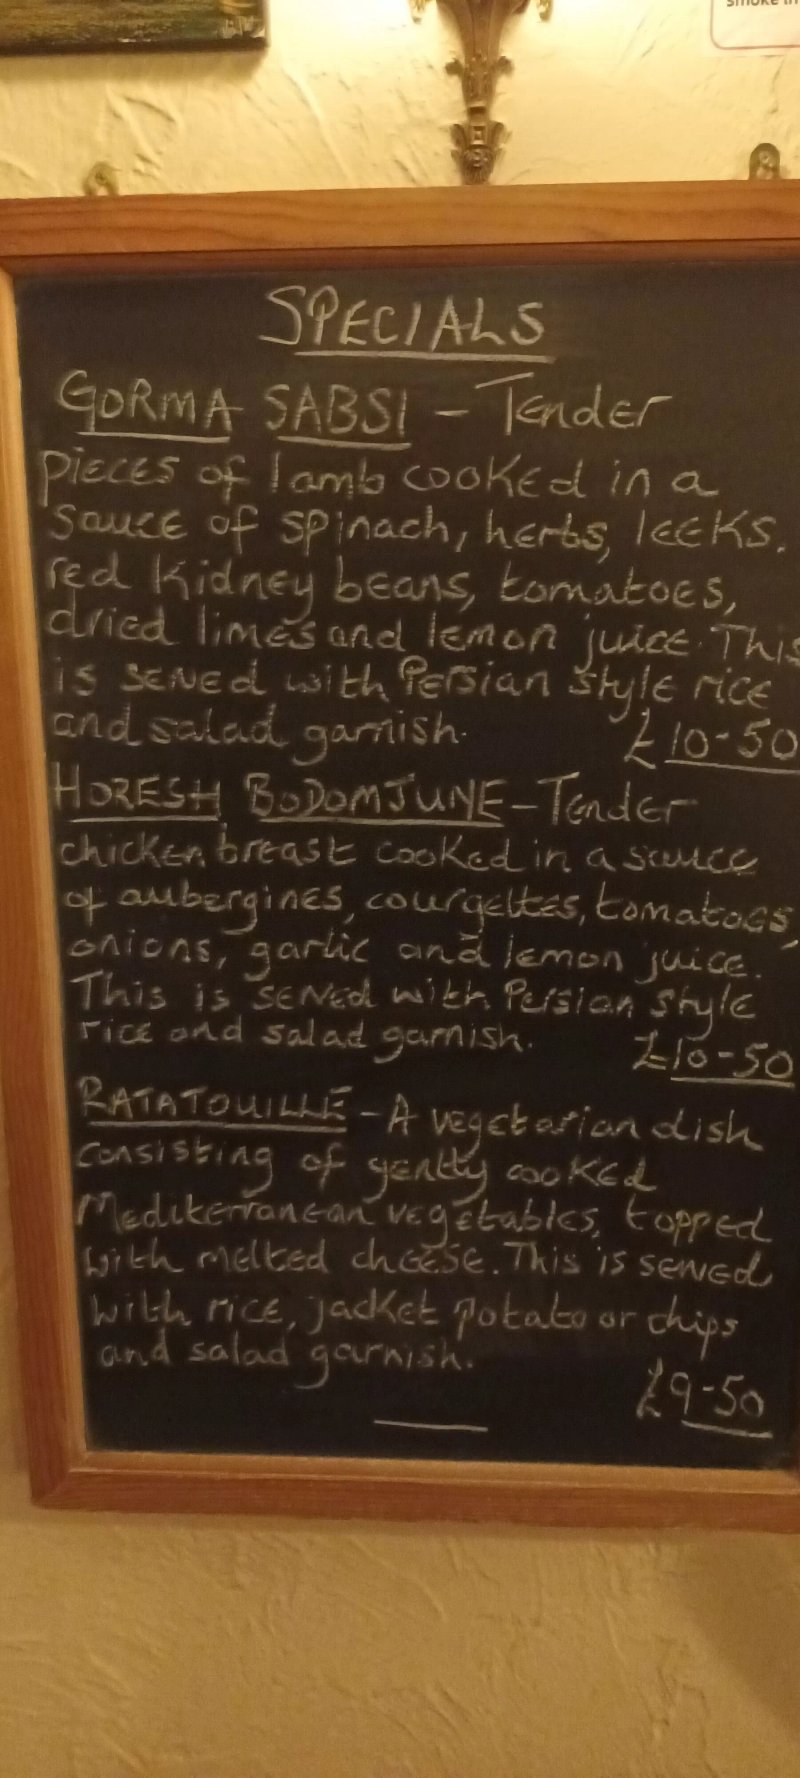 smoke in
SPECIALS
GORMA SABSI - Tender
pieces of lamb cooked in a
sauce of spinach, herbs, leeks.
red kidney beans, tomatoes,
dried limes and lemon juice. This
is served with Persian style rice
and salad garnish. £10-50
HORESH BODOMJUNE - Tender
chicken breast cooked in a sauce
of aubergines, courgettes, tomatoes,
onions, garlic and lemon juice.
This is served with Persian style
rice and salad garnish. £10-50
RATATOUILLE - A vegetarian dish
consisting of gently cooked
Mediterranean vegetables, topped
with melted cheese. This is served
with rice, jacket potato or chips
and salad garnish.
£9-50